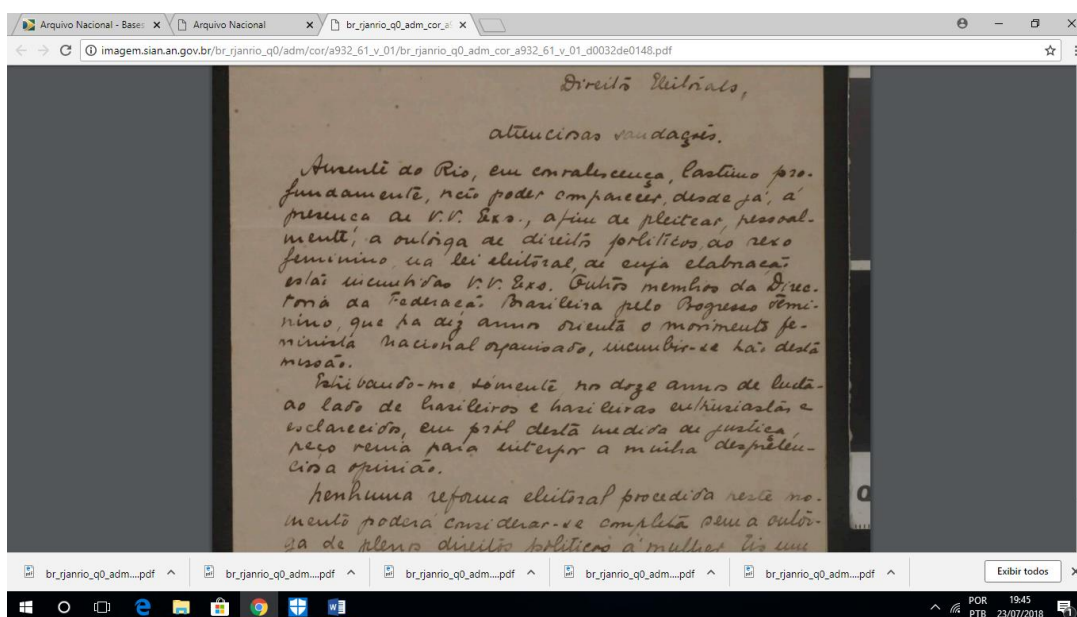 Arquivo Nacional - Bases
Arquivo Nacional
br_rjanrio_q0_adm_cor_a
imagem.sian.an.gov.br/br_rjanrio_q0/adm/cor/a932_61_v_01/br_rjanrio_q0_adm_cor_a932_61_v_01_d0032de0148.pdf
Direitos Eleitoraes,
attenciosas saudações.
Ausente do Rio, em convalescença, lastimo pro-
fundamente, não poder comparecer, desde já, á
presença de V.V. Exs., afim de pleitear, pessoal-
mente, a outorga de direitos politicos, ao sexo
feminino, na lei eleitoral, de cuja elaboração
estão incumbidos V.V. Exs. Outros membros da Direc-
toria da Federação Brasileira pelo Progresso Femi-
nino, que ha dez annos orienta o movimento fe-
minista nacional organisado, incumbir-se hão desta
missão.
Estribando-me sómente nos doze annos de lucta
ao lado de brasileiros e brasileiras enthusiastas e
esclarecidos, em pról desta medida de justiça,
peço venia para interpor a minha despreten-
ciosa opinião.
Nenhuma reforma eleitoral procedida neste mo-
mento poderá considerar-se completa sem a outor-
ga de plenos direitos politicos á mulher. Eis um
br_rjanrio_q0_adm....pdf
br_rjanrio_q0_adm....pdf
br_rjanrio_q0_adm....pdf
br_rjanrio_q0_adm....pdf
br_rjanrio_q0_adm....pdf
Exibir todos
POR
PTB
19:45
23/07/2018